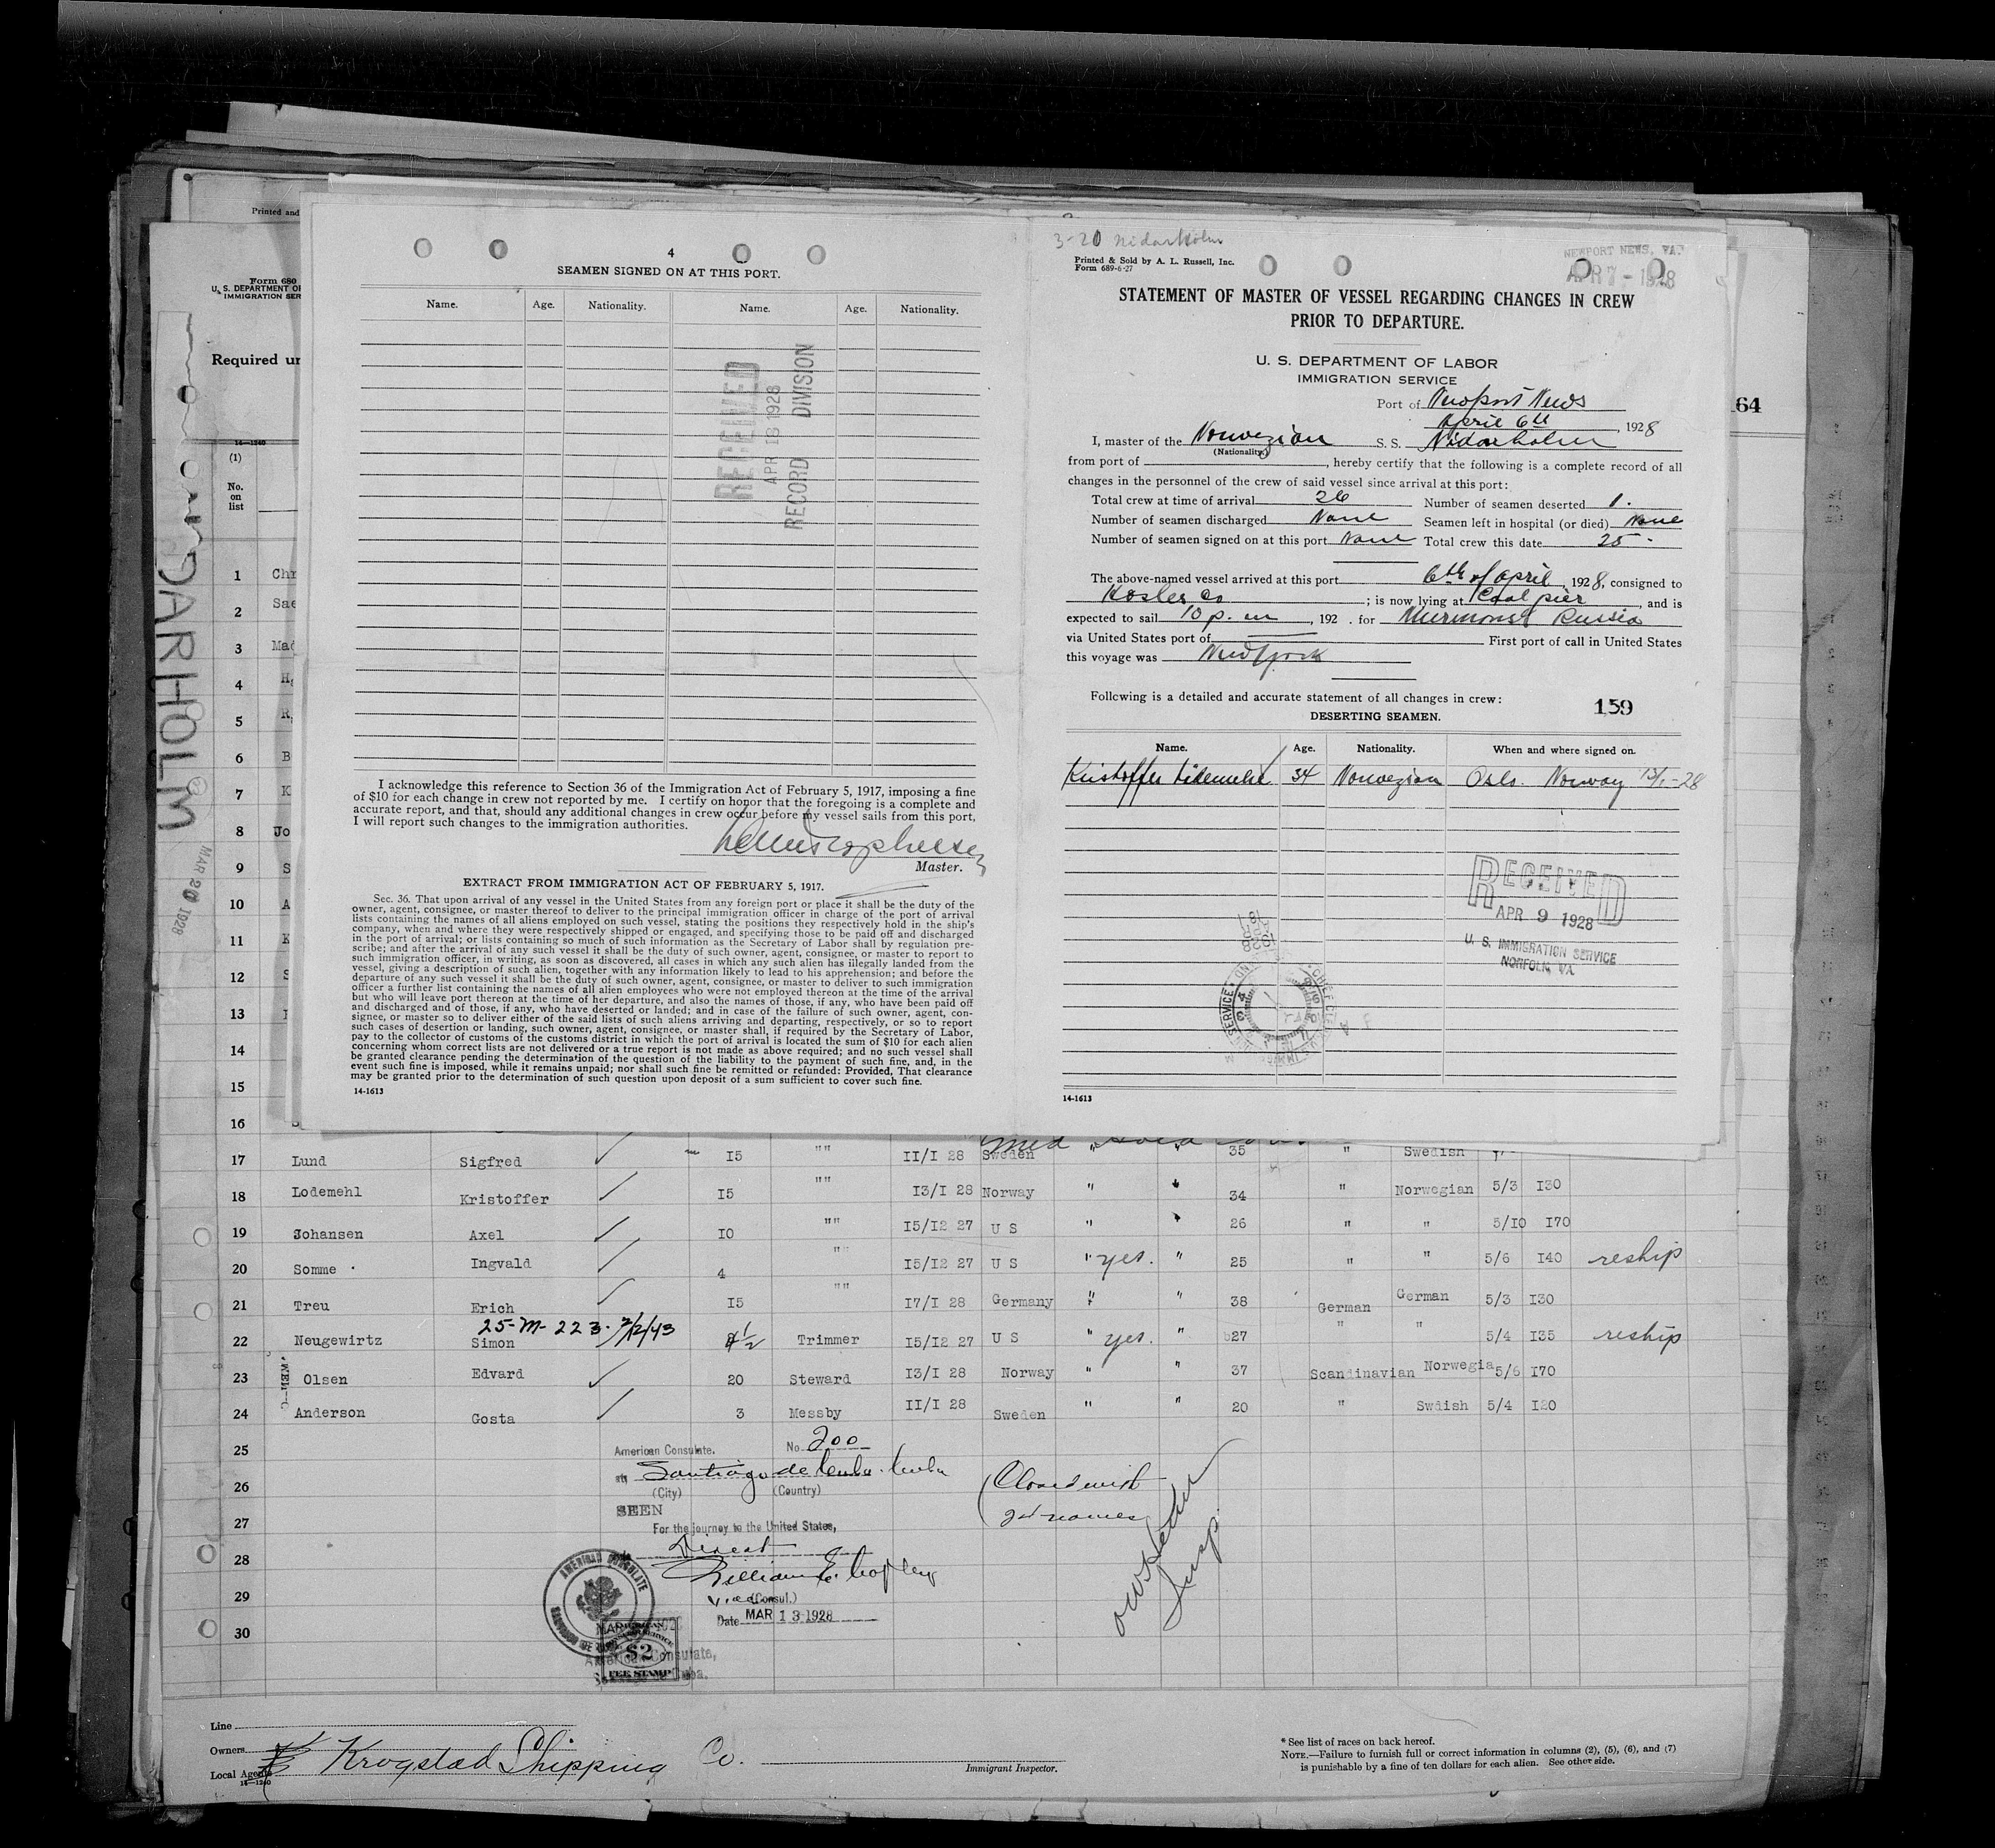 4
SEAMEN SIGNED ON AT THIS PORT.
Name. Age. Nationality. Name. Age. Nationality.
RECEIVED
APR 18 1928
RECORD DIVISION
I acknowledge this reference to Section 36 of the Immigration Act of February 5, 1917, imposing a fine
of $10 for each change in crew not reported by me. I certify on honor that the foregoing is a complete and
accurate report, and that, should any additional changes in crew occur before my vessel sails from this port,
I will report such changes to the immigration authorities.
Master.
EXTRACT FROM IMMIGRATION ACT OF FEBRUARY 5, 1917.
Sec. 36. That upon arrival of any vessel in the United States from any foreign port or place it shall be the duty of the
owner, agent, consignee, or master thereof to deliver to the principal immigration officer in charge of the port of arrival
lists containing the names of all aliens employed on such vessel, stating the positions they respectively hold in the ship's
company, when and where they were respectively shipped or engaged, and specifying those to be paid off and discharged
in the port of arrival; or lists containing so much of such information as the Secretary of Labor shall by regulation pre-
scribe; and after the arrival of any such vessel it shall be the duty of such owner, agent, consignee, or master to report to
such immigration officer, in writing, as soon as discovered, all cases in which any such alien has illegally landed from the
vessel, giving a description of such alien, together with any information likely to lead to his apprehension; and before the
departure of any such vessel it shall be the duty of such owner, agent, consignee, or master to deliver to such immigration
officer a further list containing the names of all alien employees who were not employed thereon at the time of the arrival
but who will leave port thereon at the time of her departure, and also the names of those, if any, who have been paid off
and discharged and of those, if any, who have deserted or landed; and in case of the failure of such owner, agent, con-
signee, or master so to deliver either of the said lists of such aliens arriving and departing, respectively, or so to report
such cases of desertion or landing, such owner, agent, consignee, or master shall, if required by the Secretary of Labor,
pay to the collector of customs of the customs district in which the port of arrival is located the sum of $10 for each alien
concerning whom correct lists are not delivered or a true report is not made as above required; and no such vessel shall
be granted clearance pending the determination of the question of the liability to the payment of such fine, and, in the
event such fine is imposed, while it remains unpaid; nor shall such fine be remitted or refunded: Provided, That clearance
may be granted prior to the determination of such question upon deposit of a sum sufficient to cover such fine.
14-1613
3-20 Nidarholm
Printed & Sold by A. L. Russell, Inc.
Form 689-6-27
NEWPORT NEWS, VA.
APR 7 - 1928
STATEMENT OF MASTER OF VESSEL REGARDING CHANGES IN CREW
PRIOR TO DEPARTURE.
U. S. DEPARTMENT OF LABOR
IMMIGRATION SERVICE
Port of Newport News
April 6th, 1928
I, master of the Norwegian S. S. Nidarholm
(Nationality)
from port of , hereby certify that the following is a complete record of all
changes in the personnel of the crew of said vessel since arrival at this port:
Total crew at time of arrival 26 Number of seamen deserted 1.
Number of seamen discharged None Seamen left in hospital (or died) None
Number of seamen signed on at this port None Total crew this date 25.
The above-named vessel arrived at this port 6th of april, 1928, consigned to
Hosler Co ; is now lying at Coal pier, and is
expected to sail 10 p. m, 192 . for Murmonsk Russia
via United States port of First port of call in United States
this voyage was New York
Following is a detailed and accurate statement of all changes in crew:
159
DESERTING SEAMEN.
Name. Age. Nationality. When and where signed on.
Kristoffer 34 Norwegian Oslo. Norway 13/1-28
RECEIVED
APR 9 1928
U. S. IMMIGRATION SERVICE
NORFOLK, VA.
14-1613
Printed and
Form 680
U. S. DEPARTMENT OF
IMMIGRATION SER
Required un
64
14-1240
(1)
No.
on
list
DARHOLM
MAR 20 1928
1 Chr
2 Sae
3 Mad
4 H
5 R
6 B
7 K
8 Jo
9 S
10 A
11 K
12 S
13
14
15
16
17 Lund Sigfred 15 "" 11/1 28 Sweden " " 35 " Swedish
18 Lodemehl Kristoffer 15 "" 13/1 28 Norway " " 34 " Norwegian 5/3 130
19 Johansen Axel 10 "" 15/12 27 U S " " 26 " " 5/10 170
20 Somme Ingvald 4 "" 15/12 27 U S " yes. " 25 " " 5/6 140 reship
21 Treu Erich 15 "" 17/1 28 Germany " " 38 German German 5/3 130
25-M-223. 2/12/43
22 Neugewirtz Simon 4½ Trimmer 15/12 27 U S " yes. " 27 " " 5/4 135 reship
23 Olsen Edvard 20 Steward 13/1 28 Norway " " 37 Scandinavian Norwegia 5/6 170
24 Anderson Gosta 3 Messby 11/1 28 Sweden " " 20 " Swdish 5/4 120
25 American Consulate. No. 200
26 at Santiago de Cuba. Cuba
(City) (Country)
SEEN
Closed with
24 names
27 For the journey to the United States,
Direct
28
29 Vice (Consul.)
Date MAR 13 1928
30
AMERICAN CONSULATE
$2
FEE STAMP
American Consulate,
Insp.
Line
Owners
Local Agents Krogstad Shipping Co.
14-1240
Immigrant Inspector.
* See list of races on back hereof.
NOTE.—Failure to furnish full or correct information in columns (2), (5), (6), and (7)
is punishable by a fine of ten dollars for each alien. See other side.